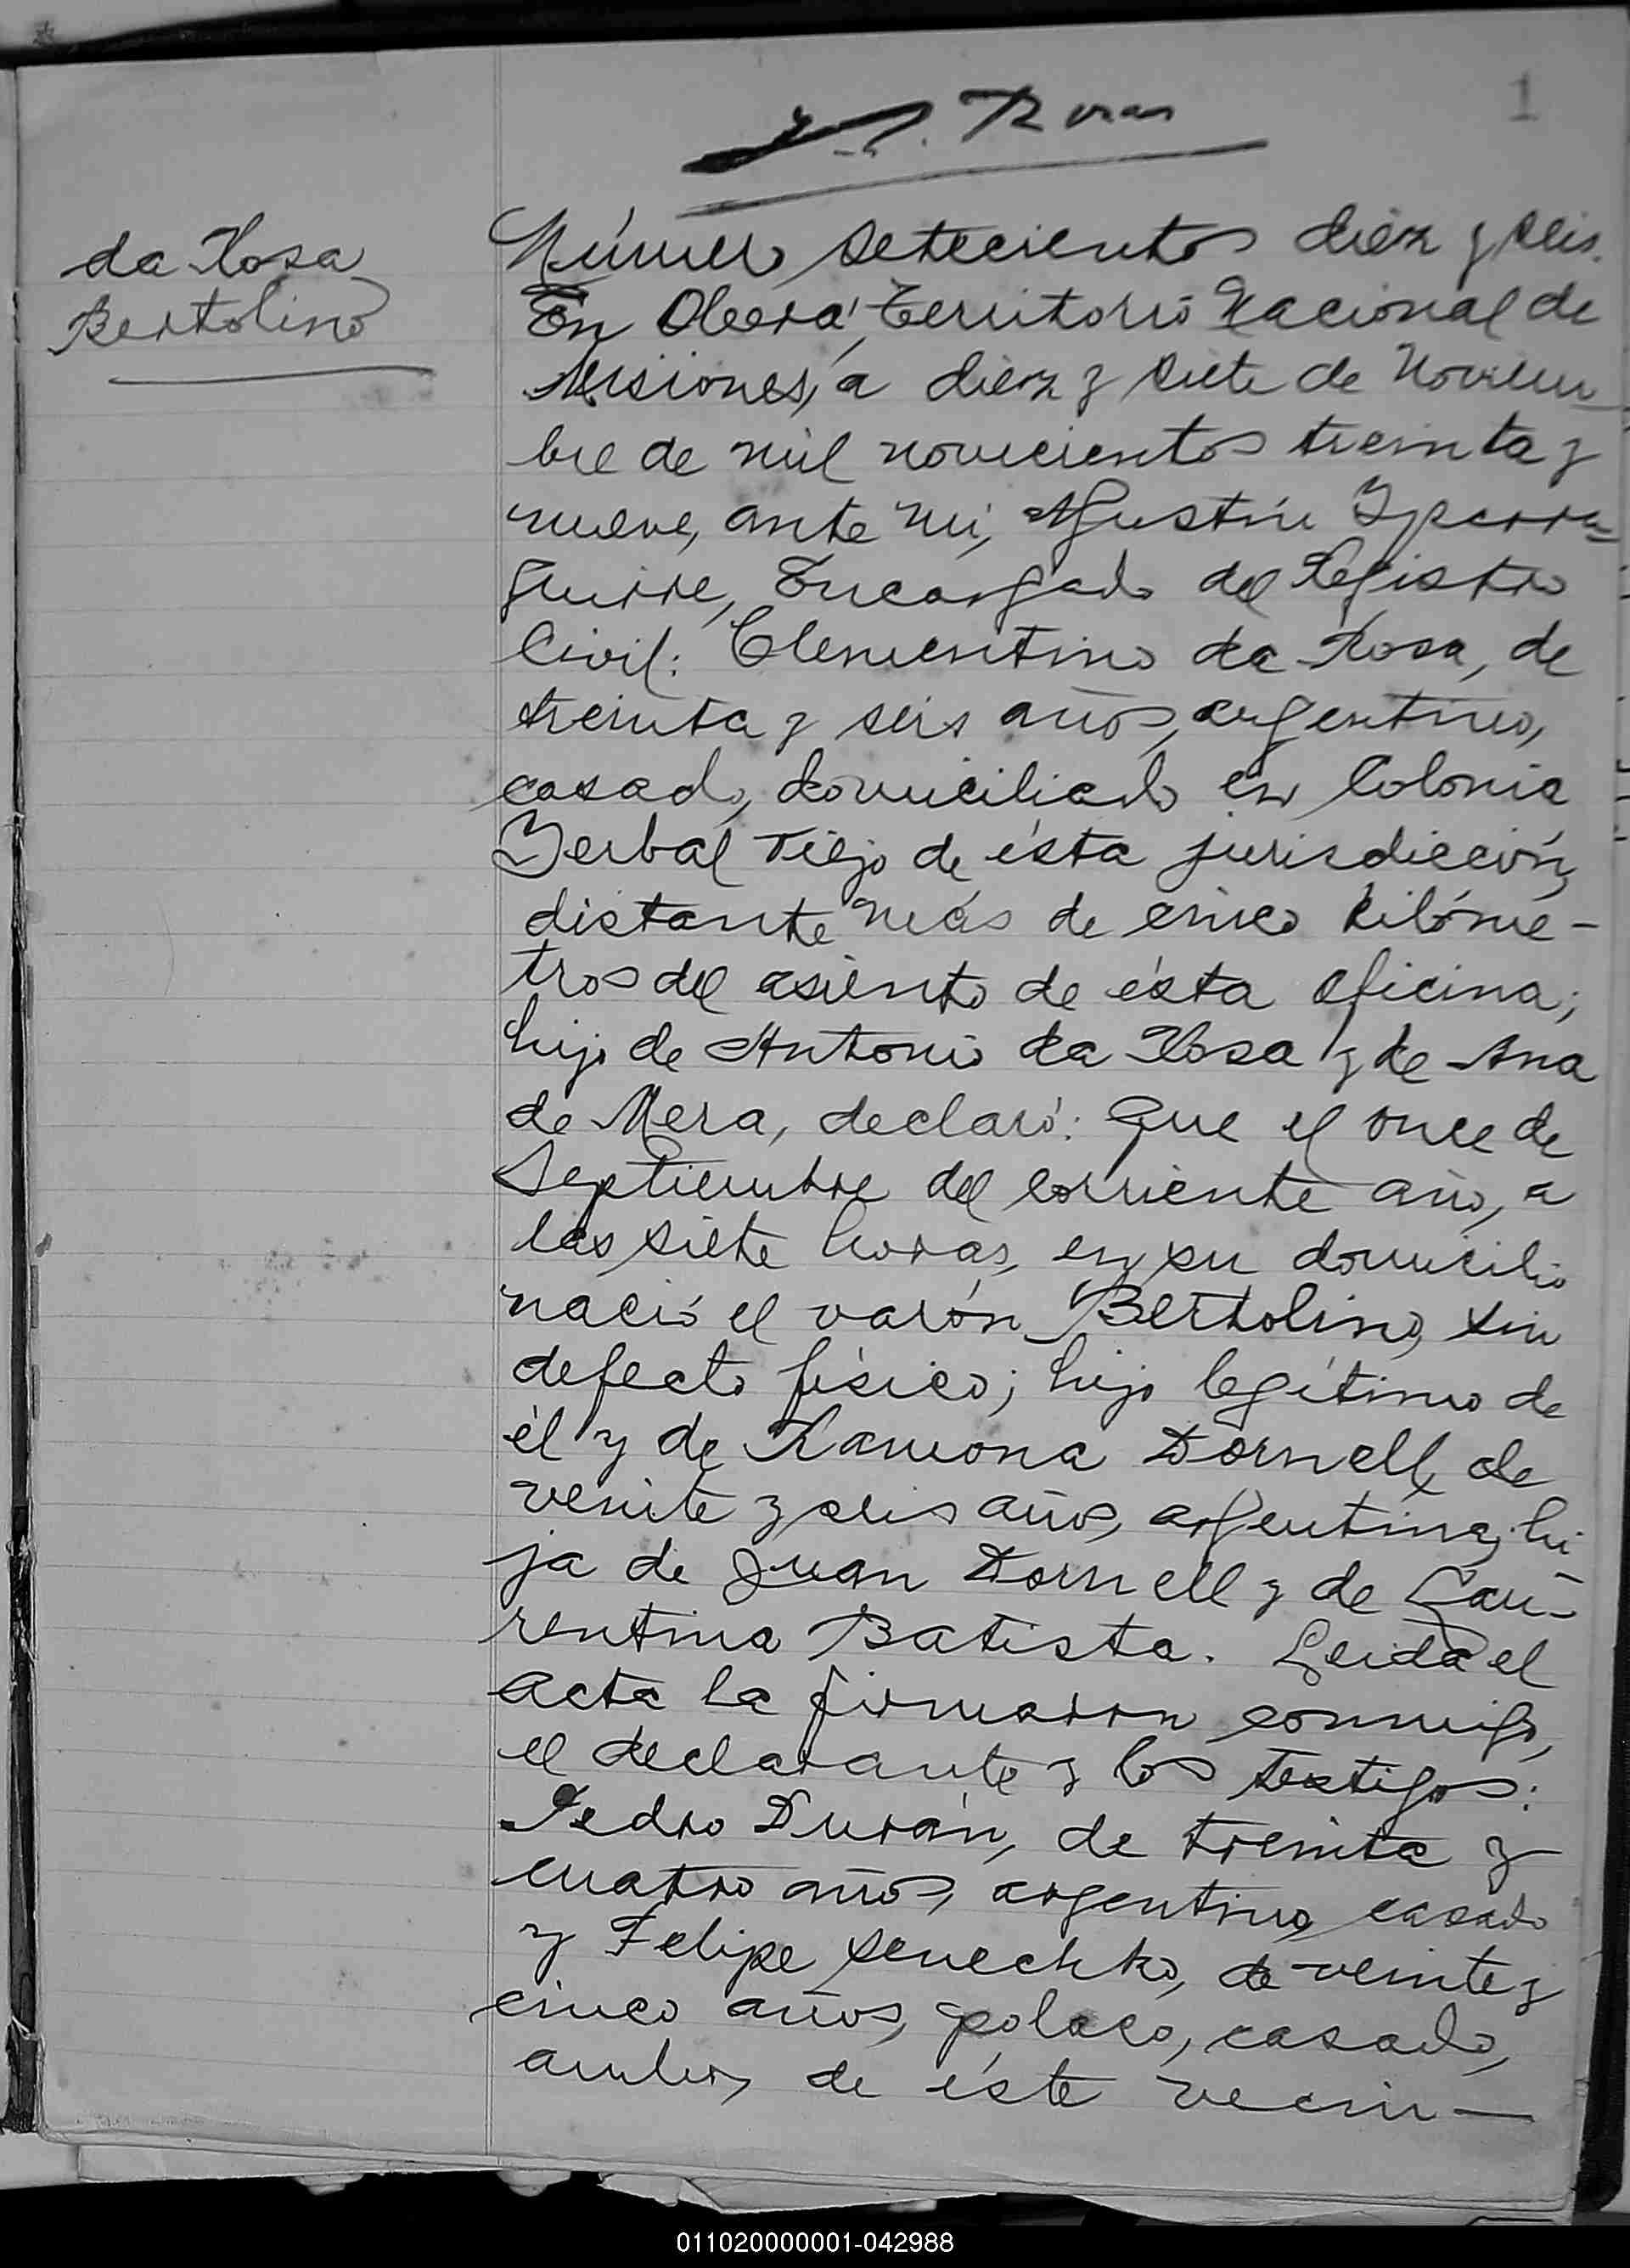 1
da Rosa
Bertolino
Número setecientos diez y seis.
En Oberá, Territorio Nacional de
Misiones, a diez y siete de Noviem-
bre de mil novecientos treinta y
nueve, ante mí, Agustín Yparra-
guirre, Encargado del Registro
Civil: Clementino da Rosa, de
treinta y seis años, argentino,
casado, domiciliado en Colonia
Yerbal Viejo de ésta jurisdicción,
distante más de cinco kilóme-
tros del asiento de ésta oficina;
hijo de Antonio da Rosa y de Ana
de Mera, declaró: Que el once de
Septiembre del corriente año, a
las siete horas, en su domicilio
nació el varón Bertholino, sin
defecto físico; hijo legítimo de
él y de Ramona Dornell, de
veinte y seis años, argentina, hi-
ja de Juan Dornell y de Lau-
rentina Batista. Leida el
acta la firmaron conmigo,
el declarante y los testigos:
Pedro Durán, de treinta y
cuatro años, argentino, casado
y Felipe Senechko, de veinte y
cinco años, polaco, casado,
ambos de éste vecin-
011020000001-042988